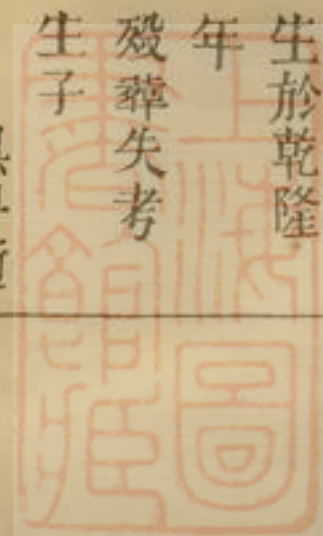 生於乾隆
年
歿葬失考
生子
上海圖書館藏